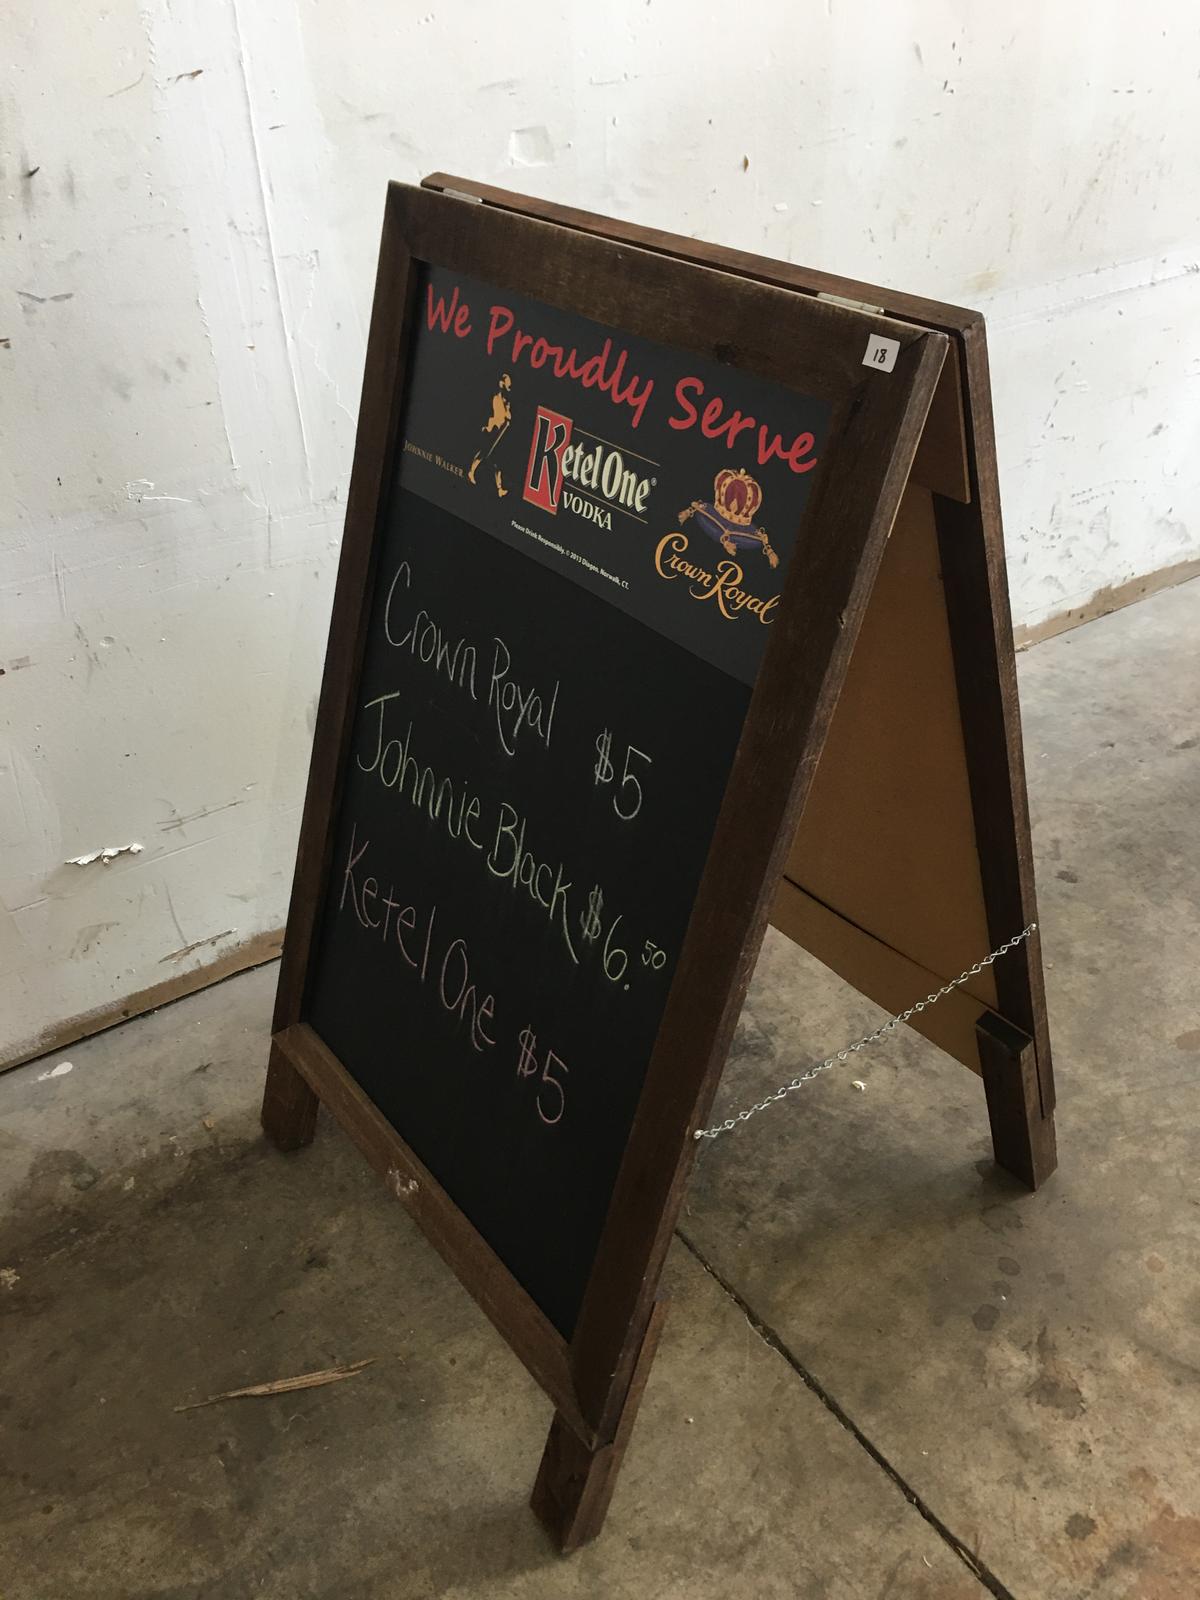 18
We Proudly Serve
JOHNNIE WALKER
Ketel One®
VODKA
Crown Royal
Please Drink Responsibly. © 2013 Diageo, Norwalk, CT.
Crown Royal $5
Johnnie Black $6.50
Ketel One $5